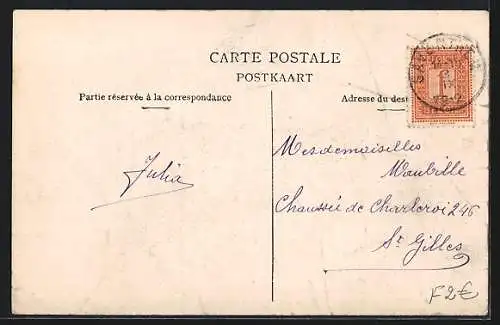 CARTE POSTALE
POSTKAART
Partie réservée à la correspondance
Adresse du dest
Mesdemaiselles
Julia
Chaussée de Charleroi 246
St Gilles
F2€